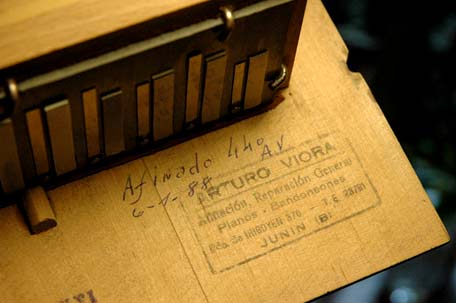 Afinado 440
A.V.
6-1-88
ARTURO VIORA
Afinación, Reparación General
Pianos - Bandoneones
Pte. de HIRIGOYEN 570 - T. E.
JUNIN (B)